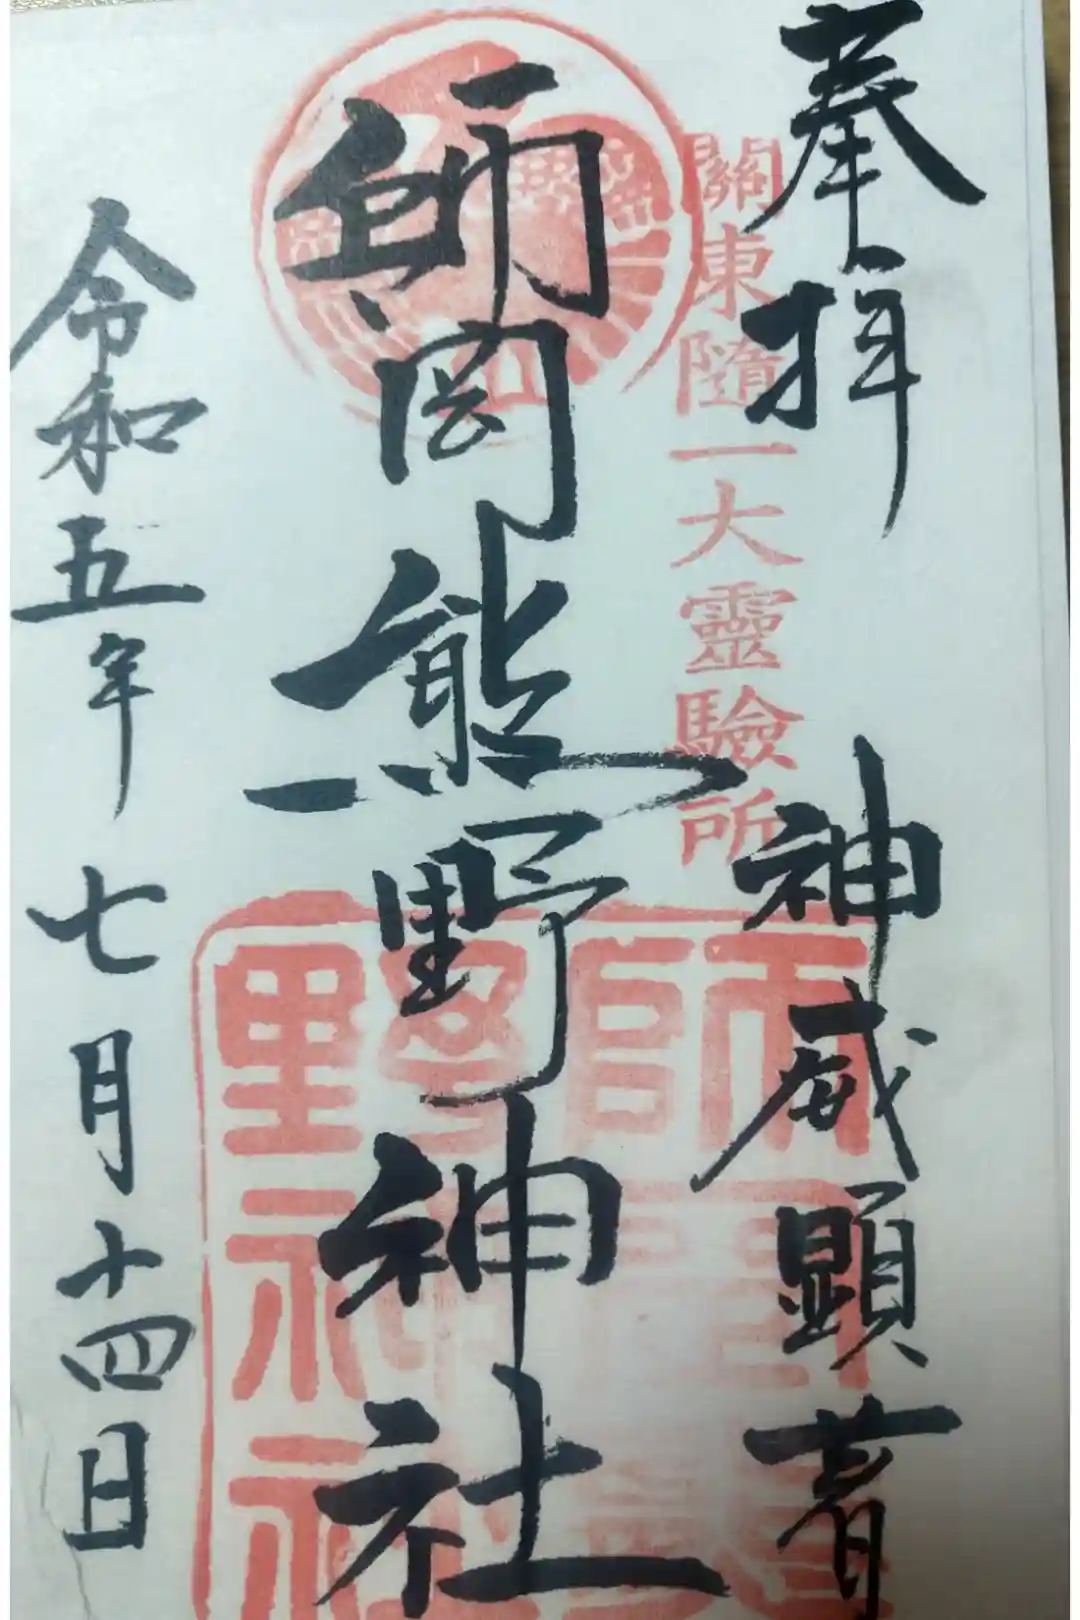 奉拝
神威顕著
關東隨一大靈驗所
師岡熊野神社
令和五年七月十四日